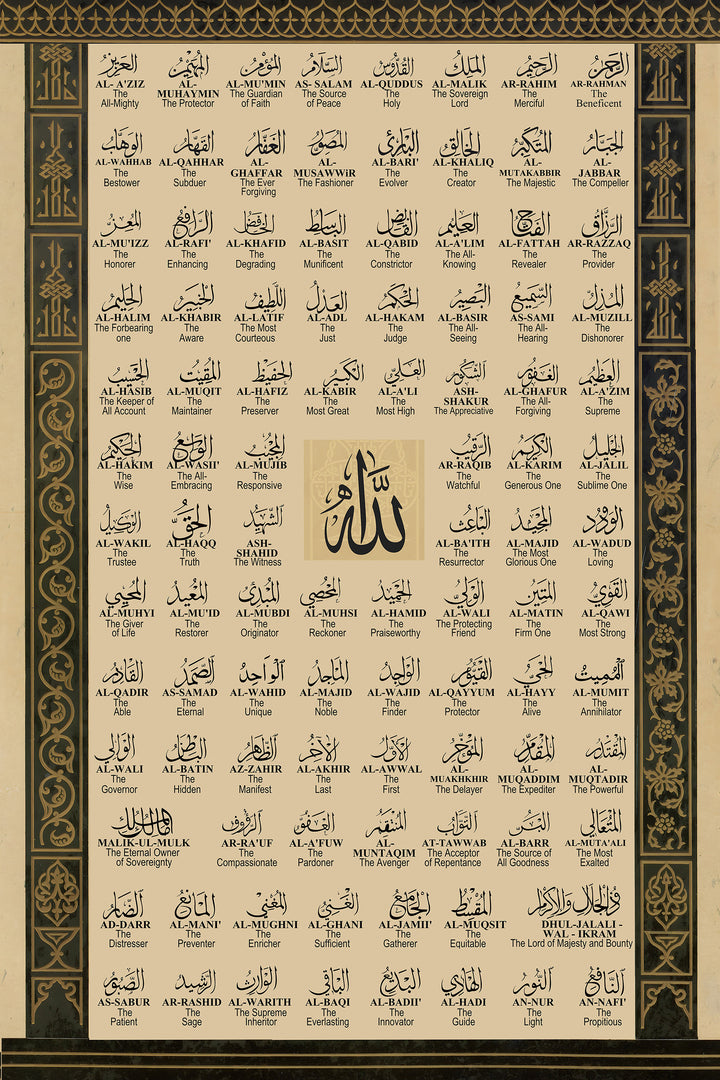 الرحمن
AR-RAHMAN
The
Beneficent
الرحيم
AR-RAHIM
The
Merciful
الملك
AL-MALIK
The Sovereign
Lord
القدوس
AL-QUDDUS
The
Holy
السلام
AS- SALAM
The Source
of Peace
المؤمن
AL-MU'MIN
The Guardian
of Faith
المهيمن
AL-
MUHAYMIN
The Protector
العزيز
AL- A'ZIZ
The
All-Mighty
الجبار
AL-
JABBAR
The Compeller
المتكبر
AL-
MUTAKABBIR
The Majestic
الخالق
AL-KHALIQ
The
Creator
البارئ
AL-BARI'
The
Evolver
المصور
AL-
MUSAWWiR
The Fashioner
الغفار
AL-
GHAFFAR
The Ever
Forgiving
القهار
AL-QAHHAR
The
Subduer
الوهاب
AL-WAHHAB
The
Bestower
الرزاق
AR-RAZZAQ
The
Provider
الفتاح
AL-FATTAH
The
Revealer
العليم
AL-A'LIM
The All-
Knowing
القابض
AL-QABID
The
Constrictor
الباسط
AL-BASIT
The
Munificent
الخافض
AL-KHAFID
The
Degrading
الرافع
AL-RAFI'
The
Enhancing
المعز
AL-MU'IZZ
The
Honorer
المذل
AL-MUZILL
The
Dishonorer
السميع
AS-SAMI
The All-
Hearing
البصير
AL-BASIR
The All-
Seeing
الحكم
AL-HAKAM
The
Judge
العدل
AL-ADL
The
Just
اللطيف
AL-LATIF
The Most
Courteous
الخبير
AL-KHABIR
The
Aware
الحليم
AL-HALIM
The Forbearing
one
العظيم
AL-A'ZIM
The
Supreme
الغفور
AL-GHAFUR
The All-
Forgiving
الشكور
ASH-
SHAKUR
The Appreciative
العلي
AL-A'LI
The
Most High
الكبير
AL-KABIR
The
Most Great
الحفيظ
AL-HAFIZ
The
Preserver
المقيت
AL-MUQIT
The
Maintainer
الحسيب
AL-HASIB
The Keeper of
All Account
الجليل
AL-JALIL
The
Sublime One
الكريم
AL-KARIM
The
Generous One
الرقيب
AR-RAQIB
The
Watchful
الله
المجيب
AL-MUJIB
The
Responsive
الواسع
AL-WASII'
The All-
Embracing
الحكيم
AL-HAKIM
The
Wise
الودود
AL-WADUD
The
Loving
المجيد
AL-MAJID
The Most
Glorious One
الباعث
AL-BA'ITH
The
Resurrector
الشهيد
ASH-
SHAHID
The Witness
الحق
AL-HAQQ
The
Truth
الوكيل
AL-WAKIL
The
Trustee
القوي
AL-QAWI
The
Most Strong
المتين
AL-MATIN
The
Firm One
الولي
AL-WALI
The Protecting
Friend
الحميد
AL-HAMID
The
Praiseworthy
المحصي
AL-MUHSI
The
Reckoner
المبدئ
AL-MUBDI
The
Originator
المعيد
AL-MU'ID
The
Restorer
المحيي
AL-MUHYI
The Giver
of Life
المميت
AL-MUMIT
The
Annihilator
الحي
AL-HAYY
The
Alive
القيوم
AL-QAYYUM
The
Protector
الواجد
AL-WAJID
The
Finder
الماجد
AL-MAJID
The
Noble
الواحد
AL-WAHID
The
Unique
الصمد
AS-SAMAD
The
Eternal
القادر
AL-QADIR
The
Able
المقتدر
AL-
MUQTADIR
The Powerful
المقدم
AL-
MUQADDIM
The Expediter
المؤخر
AL-
MUAKHKHIR
The Delayer
الأول
AL-AWWAL
The
First
الآخر
AL-AKHIR
The
Last
الظاهر
AZ-ZAHIR
The
Manifest
الباطن
AL-BATIN
The
Hidden
الوالي
AL-WALI
The
Governor
المتعالي
AL-MUTA'ALI
The Most
Exalted
البر
AL-BARR
The Source of
All Goodness
التواب
AT-TAWWAB
The Acceptor
of Repentance
المنتقم
AL-
MUNTAQIM
The Avenger
العفو
AL-A'FUW
The
Pardoner
الرءوف
AR-RA'UF
The
Compassionate
مالك الملك
MALIK-UL-MULK
The Eternal Owner
of Sovereignty
ذو الجلال والإكرام
DHUL-JALALI -
WAL - IKRAM
The Lord of Majesty and Bounty
المقسط
AL-MUQSIT
The
Equitable
الجامع
AL-JAMII'
The
Gatherer
الغني
AL-GHANI
The
Sufficient
المغني
AL-MUGHNI
The
Enricher
المانع
AL-MANI'
The
Preventer
الضار
AD-DARR
The
Distresser
النافع
AN-NAFI'
The
Propitious
النور
AN-NUR
The
Light
الهادي
AL-HADI
The
Guide
البديع
AL-BADII'
The
Innovator
الباقي
AL-BAQI
The
Everlasting
الوارث
AL-WARITH
The Supreme
Inheritor
الرشيد
AR-RASHID
The
Sage
الصبور
AS-SABUR
The
Patient